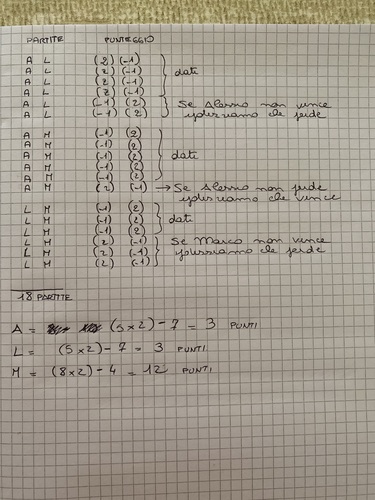 PARTITE PUNTEGGIO
A L (2) (-1)
A L (2) (-1) dati
A L (2) (-1)
A L (2) (-1)
A L (-1) (2) Se Alessio non vince
A L (-1) (2) ipotizziamo che perde
A M (-1) (2)
A M (-1) (2)
A M (-1) (2) dati
A M (-1) (2)
A M (-1) (2)
A M (2) (-1) → Se Alessio non perde
ipotizziamo che vince
L M (-1) (2)
L M (-1) (2) dati
L M (-1) (2)
L M (2) (-1) Se Marco non vince
L M (2) (-1) ipotizziamo che perde
L M (2) (-1)
18 PARTITE
A = (5x2) - 7 = 3 PUNTI
L = (5x2) - 7 = 3 PUNTI
M = (8x2) - 4 = 12 PUNTI